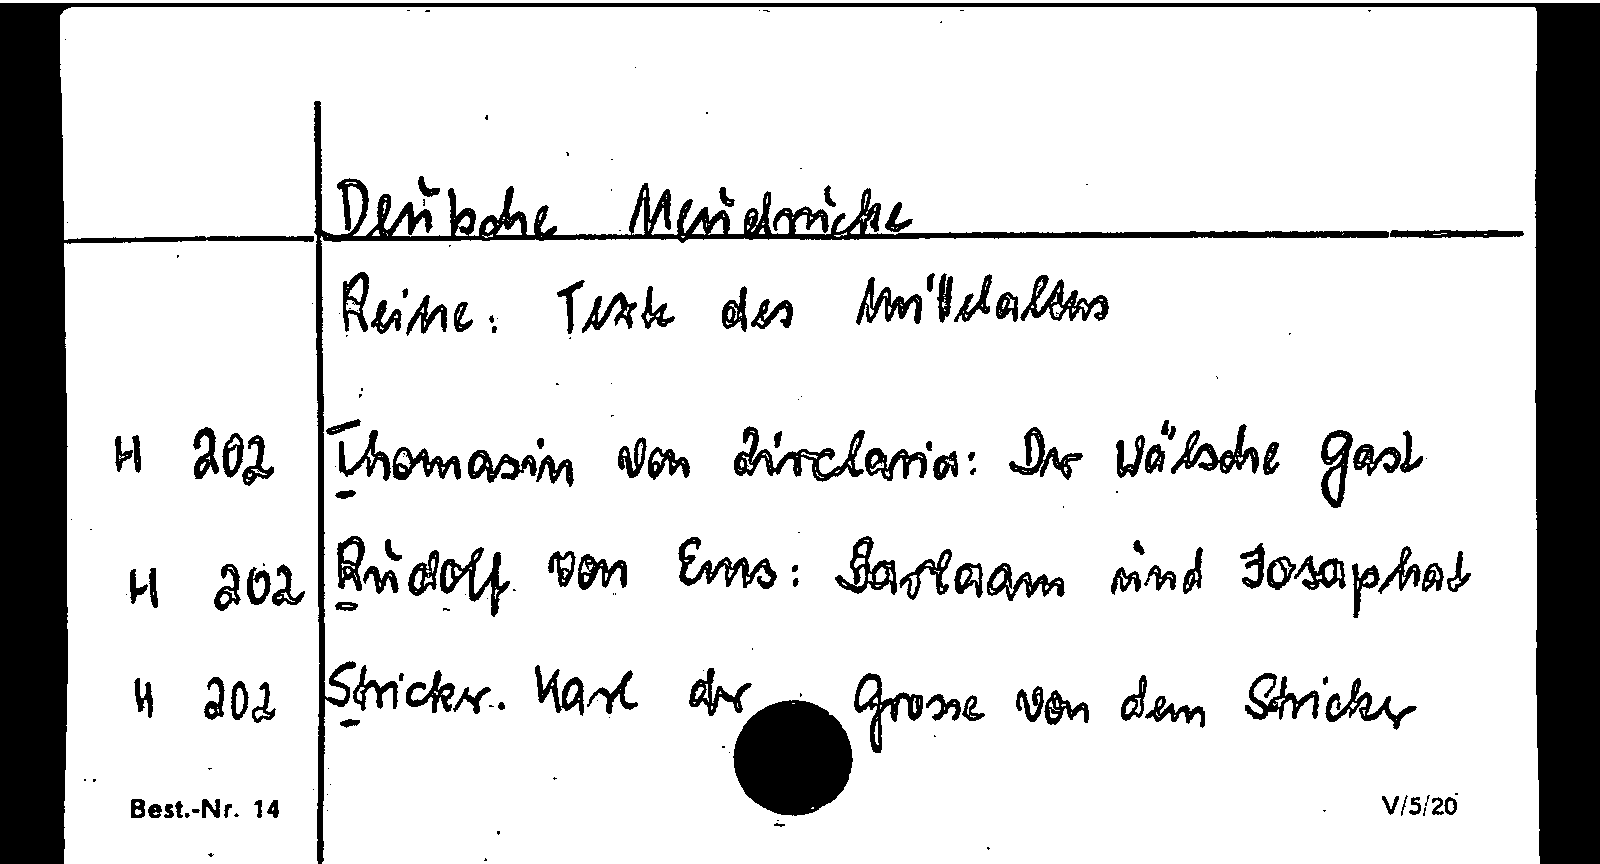 Deutsche Neudrucke
Reihe: Texte des Mittelalters
H 202 Thomasin von Zirclaria: Der Wälsche Gast
H 202 Rudolf von Ems: Barlaam und Josaphat
H 202 Stricker. Karl der Grosse von dem Stricker
Best.-Nr. 14 V/5/20